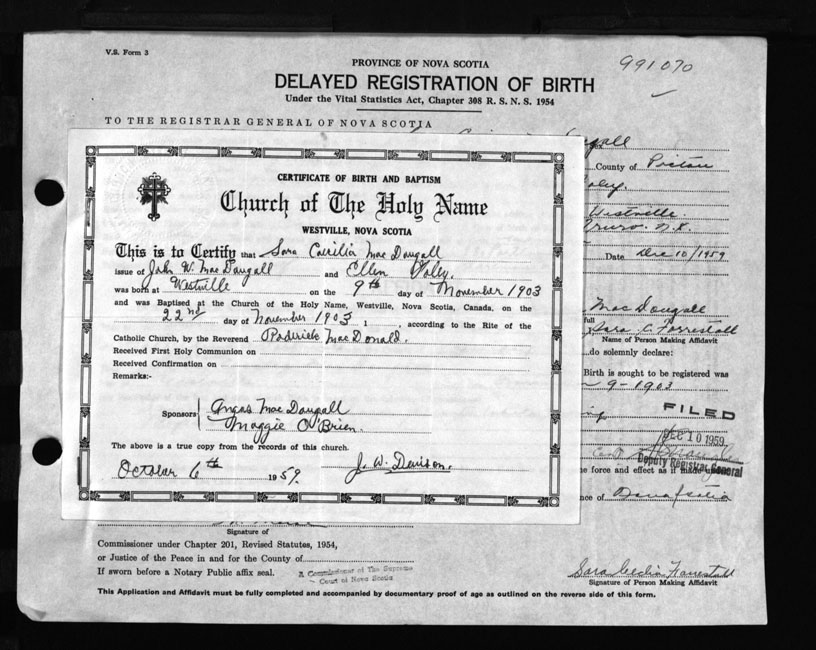 V.S. Form 3
991070
PROVINCE OF NOVA SCOTIA
DELAYED REGISTRATION OF BIRTH
Under the Vital Statistics Act, Chapter 308 R. S. N. S. 1954
TO THE REGISTRAR GENERAL OF NOVA SCOTIA
County of Pictou
Westville
Date Dec 10/1959
MacDougall
full
Sara C Forrestall
Name of Person Making Affidavit
do solemnly declare:
Birth is sought to be registered was
9-1903
FILED
DEC 10 1959
Deputy Registrar General
e force and effect as if made
nce of Nova Scotia
CERTIFICATE OF BIRTH AND BAPTISM
Church of The Holy Name
WESTVILLE, NOVA SCOTIA
This is to Certify that Sara Caecilia MacDougall
issue of John W. MacDougall and Ellen Foley.
was born at Westville on the 9th day of November 1903
and was Baptised at the Church of the Holy Name, Westville, Nova Scotia, Canada, on the
22nd day of November 1903 1 , according to the Rite of the
Catholic Church, by the Reverend MacDonald.
Received First Holy Communion on
Received Confirmation on
Remarks:-
Sponsors Angus MacDougall
Maggie O'Brien.
The above is a true copy from the records of this church.
October 6th 1959. J. W. Davison.
Signature of
Commissioner under Chapter 201, Revised Statutes, 1954,
or Justice of the Peace in and for the County of
If sworn before a Notary Public affix seal.
A Commissioner of The Supreme
Court of Nova Scotia
Sara Cecilia Forrestall
Signature of Person Making Affidavit
This Application and Affidavit must be fully completed and accompanied by documentary proof of age as outlined on the reverse side of this form.